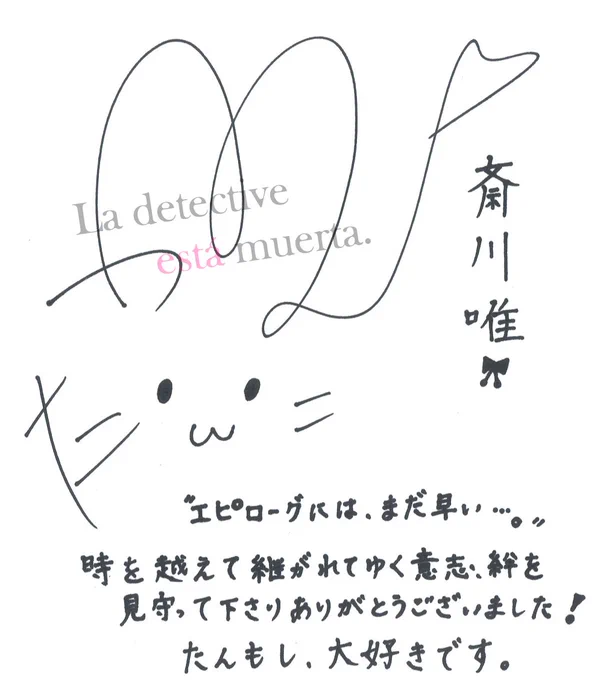 La detective
está muerta.
斎川唯
〝エピローグには、まだ早い…。〟
時を越えて継がれてゆく意志、絆を
見守って下さりありがとうございました！
たんもし、大好きです。